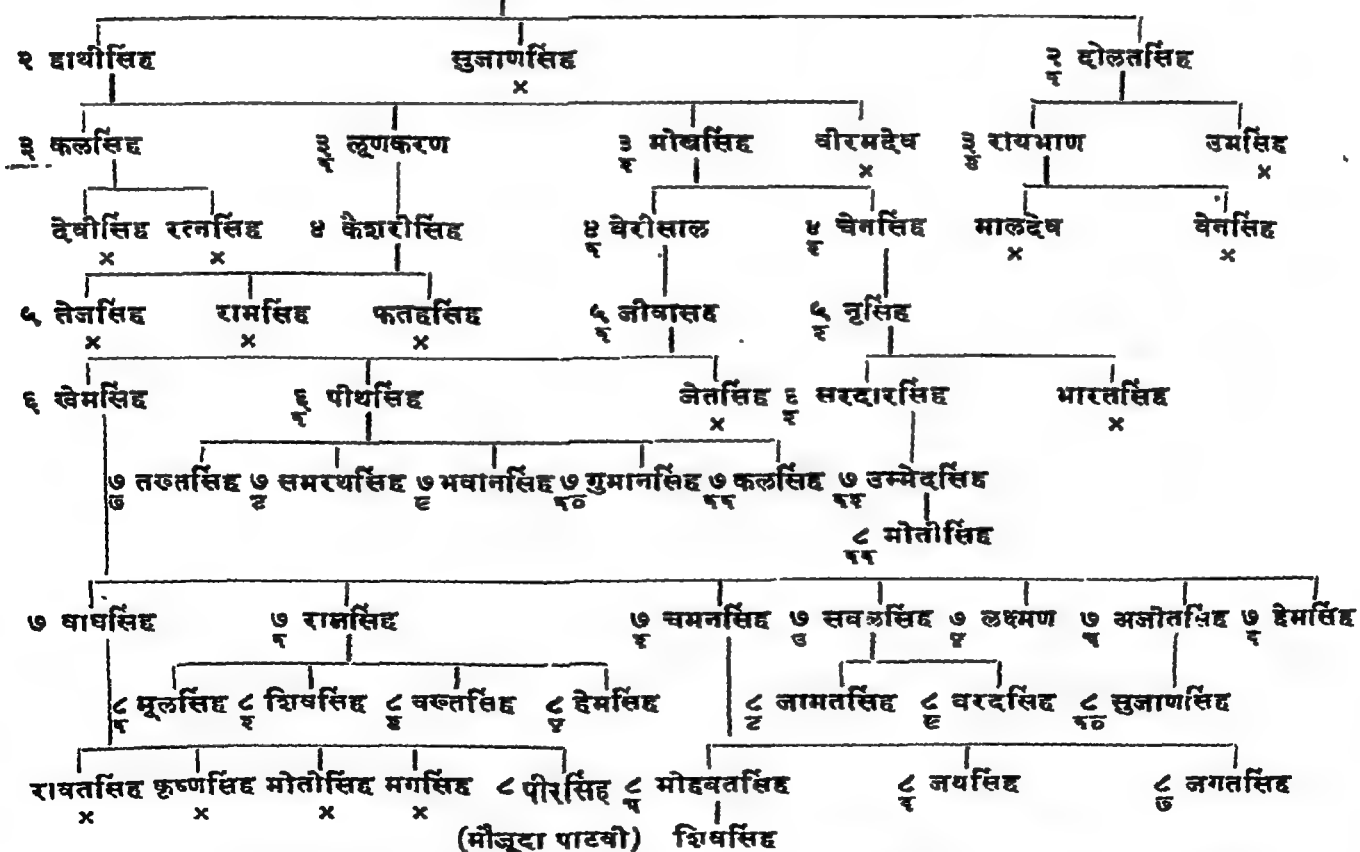 २ हाथीसिंह सुजाणसिंह २/१ दोलतसिंह
×
३ कलसिंह ३/१ लूणकरण ३/२ मोखसिंह वीरमदेव ३/३ रायभाण उमसिंह
× ×
देवीसिंह रत्नसिंह ४ केशरीसिंह ४/१ वेरीसाल ४/२ चेनसिंह मालदेव वेनसिंह
× × × ×
५ तेजसिंह रामसिंह फतहसिंह ५/१ जीवासह ५/२ नृसिंह
× × ×
६ खेमसिंह ६/१ पीथसिंह जेतसिंह ६/२ सरदारसिंह भारतसिंह
× ×
७/७ तख्तसिंह ७/८ समरथसिंह ७/९ भवानसिंह ७/१० गुमानसिंह ७/११ कलसिंह ७/१२ उम्मेदसिंह
८/११ मोतीसिंह
७ वाघसिंह ७/१ राजसिंह ७/२ चमनसिंह ७/३ सवलसिंह ७/४ लक्ष्मण ७/५ अजीतसिंह ७/६ हेमसिंह
८/१ मूलसिंह ८/२ शिवसिंह ८/३ वख्तसिंह ८/४ हेमसिंह ८/८ जामतसिंह ८/९ वरदसिंह ८/१० सुजाणसिंह
रावतसिंह कृष्णसिंह मोतीसिंह मगसिंह ८ पीरसिंह ८/५ मोहबतसिंह ८/६ जयसिंह ८/७ जगतसिंह
× × × ×
(मौजूदा पाटवी) शिवसिंह